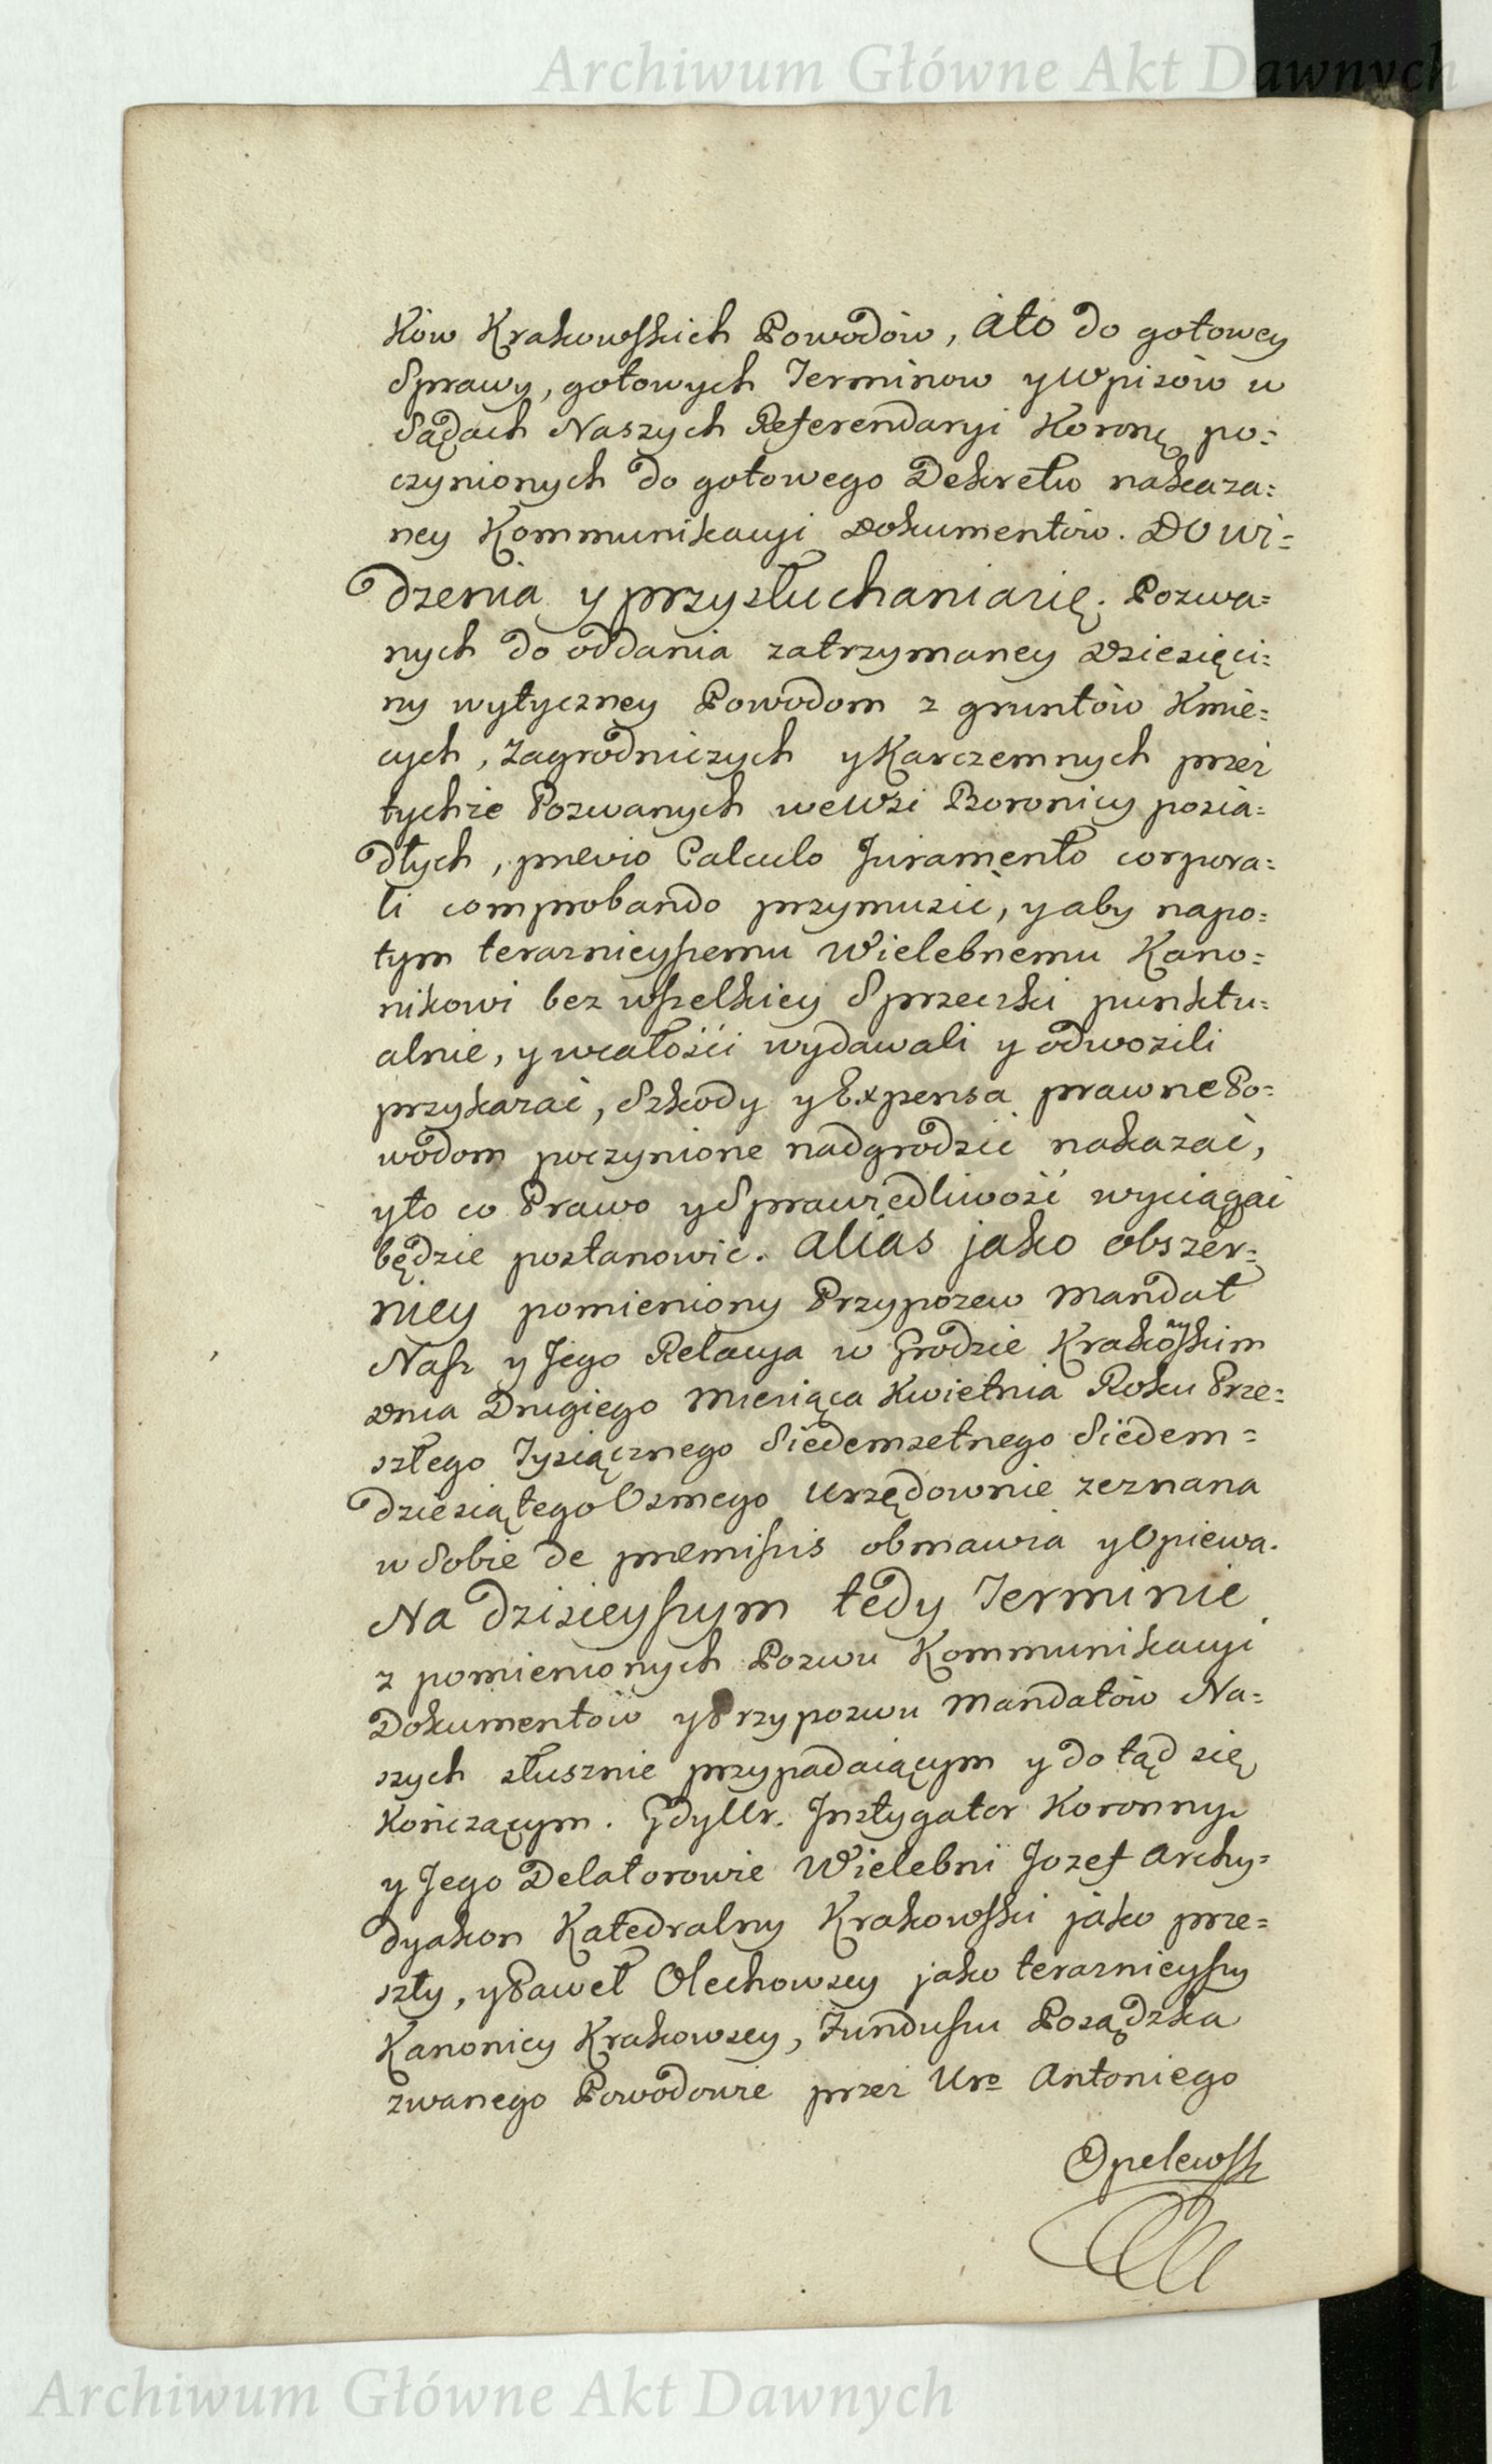 Archiwum Główne Akt Dawnych
ków Krakowskich Powodów, Ato do gotowey
Sprawy, gotowych Terminow y Wpisów w
Sądach Naszych Referendaryi Koronę po=
czynionych do gotowego Dekretu nakaza=
ney Kommunikacyi Dokumentów. Do Wi=
dzenia y przysłuchania się. Pozwa=
nych do oddania zatrzymaney Dziesięci=
ny wytyczney Powodom z gruntów Kmie=
cych, Zagrodniczych y Karczemnych przez
tychże Pozwanych we Wsi Boronicy posia=
dłych, prævio Calculo Juramento corpora=
li comprobando przymusić, y aby napo=
tym teraznieyszemu Wielebnemu Kano=
nikowi bez wszelkiey Sprzeczki punktu=
alnie, y wcałości wydawali y odwozili
przykazać, Szkody y Expensa prawne Po=
wodom poczynione nadgrodzić nakazać,
y to co Prawo y Sprawiedliwość wyciągać
będzie postanowić. Alias jako obszer=
niey pomieniony Przypozew Mandat
Nasz y Jego Relacya w Grodzie Krakowskim
Dnia Drugiego Miesiąca Kwietnia Roku Prze=
szłego Tysiącznego Siedemsetnego Siedem=
dziesiątego Osmego Urzędownie zeznana
w Sobie de præmissis obmawia y Opiewa.
Na dzisieyszym tedy Terminie
z pomienionych Pozwu Kommunikacyi
Dokumentów y Przypozwu Mandatów Na=
szych słusznie przypadaiącym y dotąd się
kończącym. Gdy Ur. Instygator Koronny
y Jego Delatorowie Wielebni Jozef Archy=
dyakon Katedralny Krakowski jako prze=
szły, y Paweł Olechowscy jako teraznieyszy
Kanonicy Krakowscy, Funduszu Posądzka
zwanego Powodowie przez Uro Antoniego
Opelewsk
Archiwum Główne Akt Dawnych